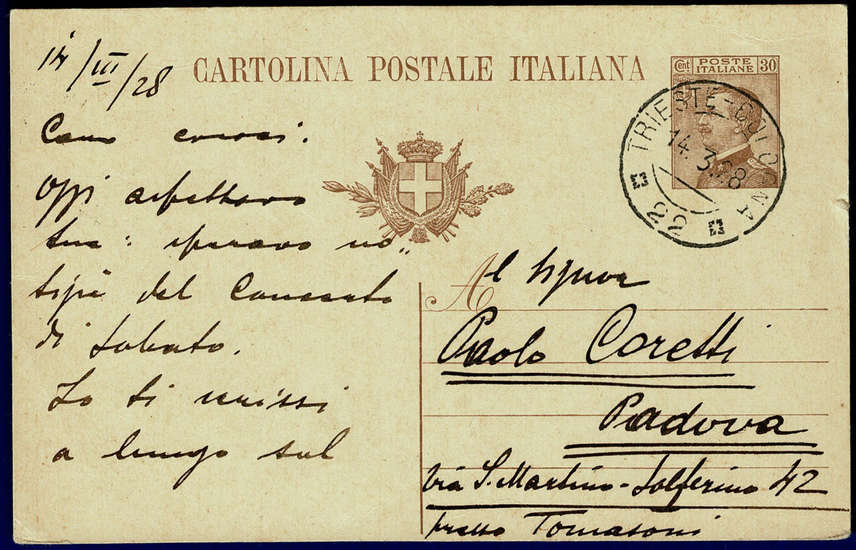 14/III/28
CARTOLINA POSTALE ITALIANA
Cent 30
POSTE ITALIANE
TRIESTE-COLONNA
14.3.28
22
Caro
Oggi aspettavo
tua: speravo no„
tizie del Concerto
di Sabato.
Io ti scrissi
a lungo sul
Al Signor
Paolo Coretti
Padova
Via S. Martino-Solferino 42
presso Tomasoni